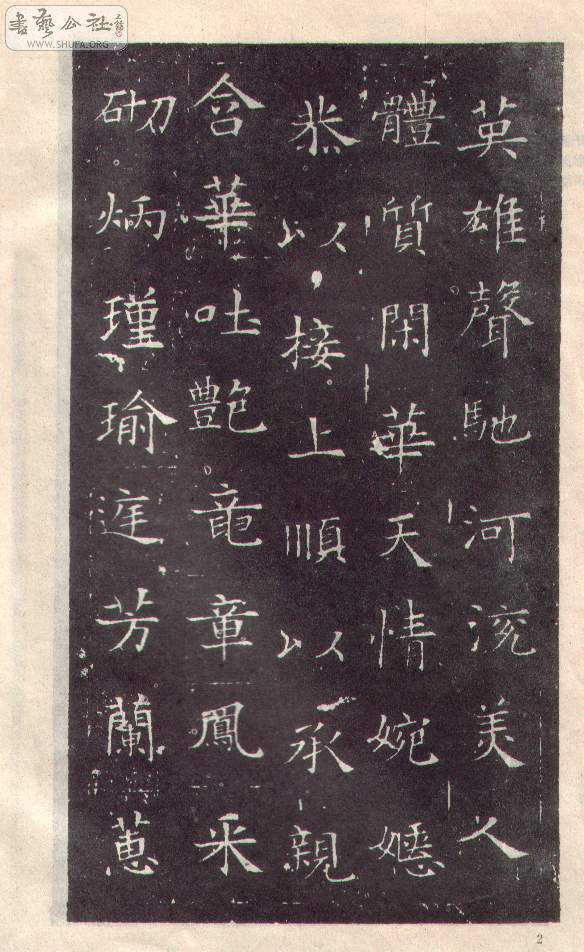 書藝公社
WWW.SHUFA.ORG
英雄聲馳河沇美人
體質閑華天情婉嫕
恭以接上順以承親
含華吐艷竜章鳳采
砌炳瑾瑜庭芳蘭蕙
2